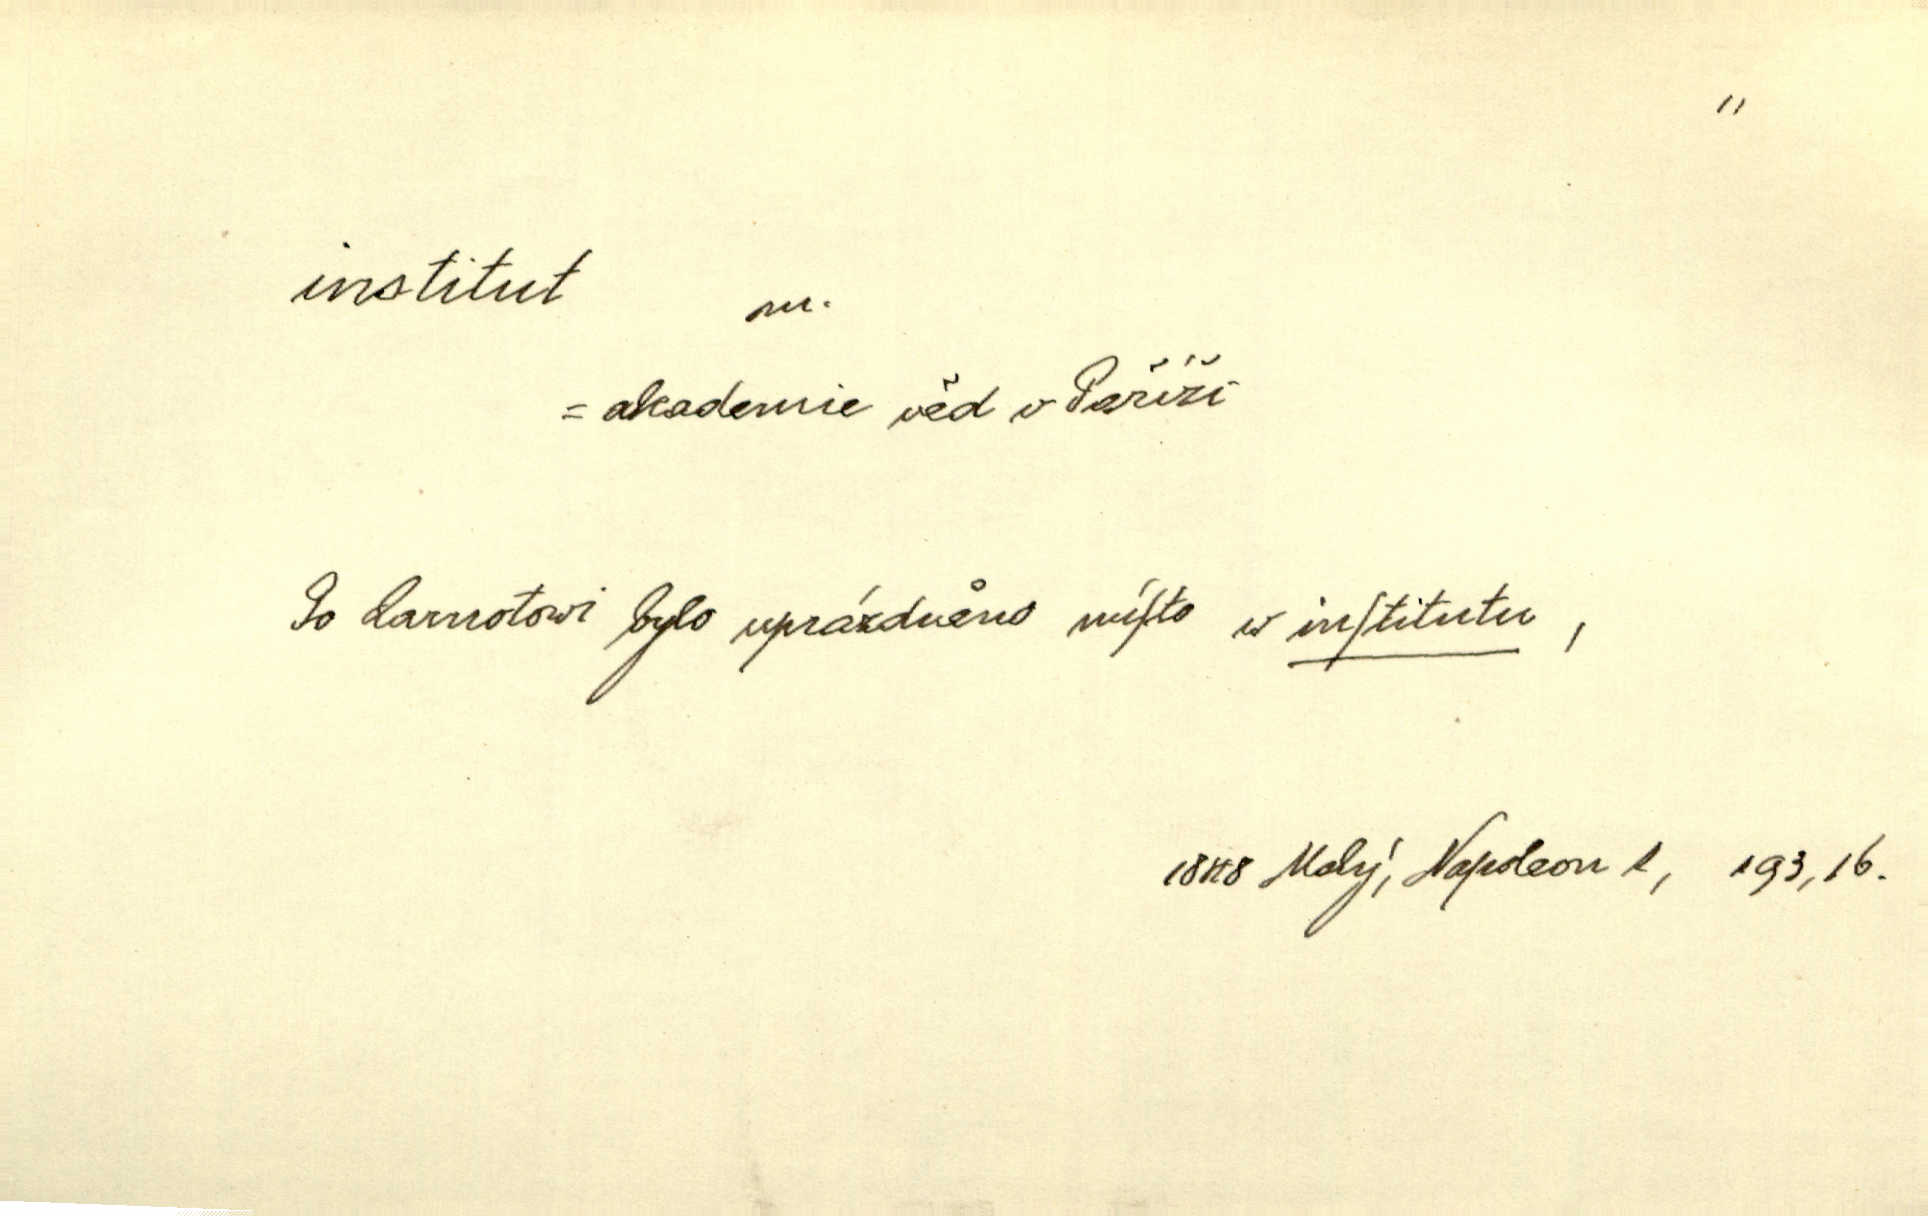 "
institut m.
= akademie věd v Paříži
Po Carnotowi bylo uprázdněno míſto w inſtitutu,
1848 Malý, Napoleon 1, 193, 16.